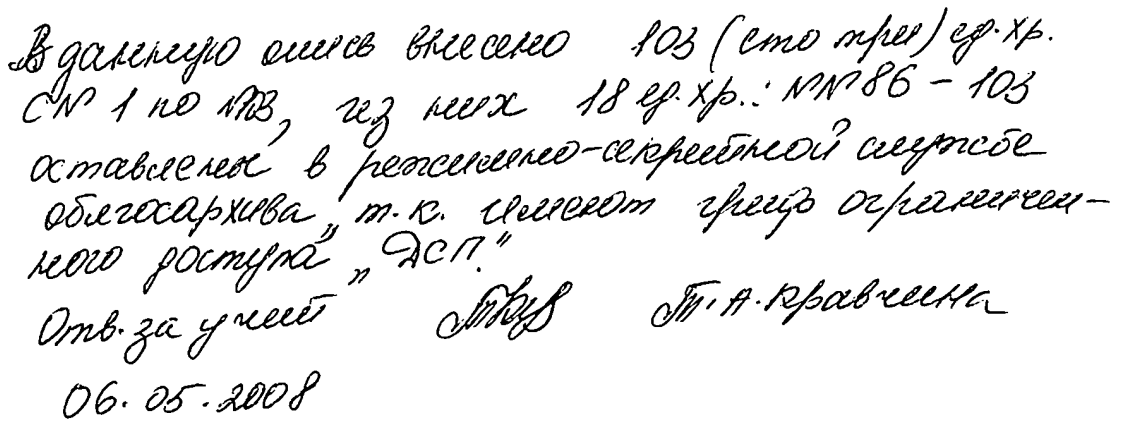 В данную опись внесено 103 (сто три) ед.хр.
с № 1 по №103, из них 18 ед.хр.: №№86 – 103
оставлены в режимно-секретной службе
облгосархива, т.к. имеют гриф ограничен-
ного доступа „ДСП."
Отв. за учет Т.А.Кравчина
06.05.2008